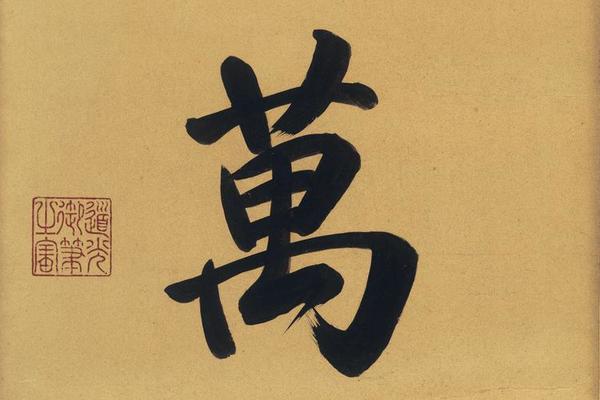 萬
道光
御筆
之寶